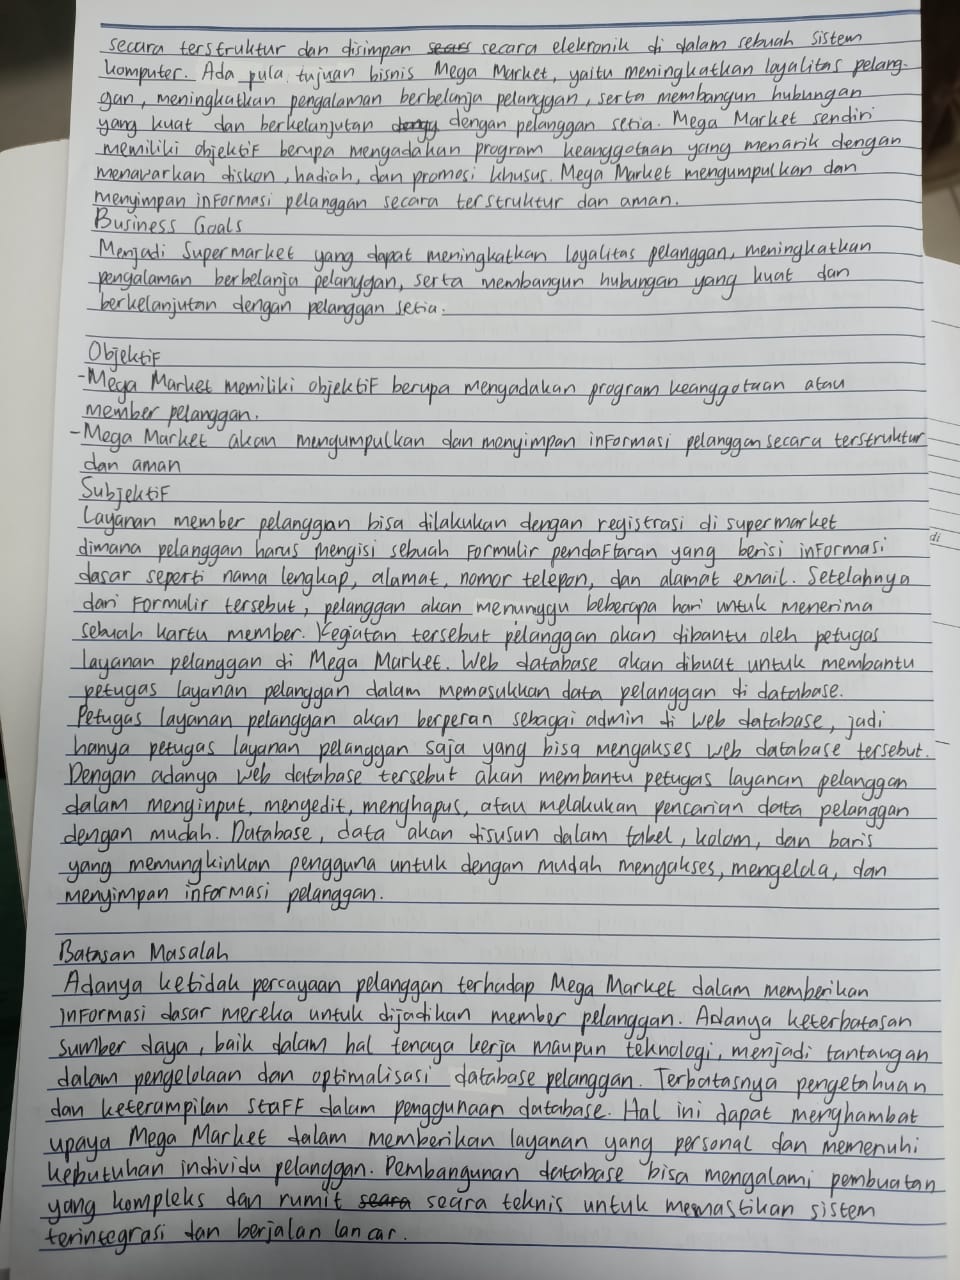 secara terstruktur dan disimpan secara elekronik di dalam sebuah sistem
komputer. Ada pula tujuan bisnis Mega Market, yaitu meningkatkan loyalitas pelang-
gan, meningkatkan pengalaman berbelanja pelanggan, serta membangun hubungan
yang kuat dan berkelanjutan dengan pelanggan setia. Mega Market sendiri
memiliki objektif berupa mengadakan program keanggotaan yang menarik dengan
menawarkan diskon, hadiah, dan promosi khusus. Mega Market mengumpulkan dan
menyimpan informasi pelanggan secara terstruktur dan aman.
Business Goals
Menjadi Supermarket yang dapat meningkatkan loyalitas pelanggan, meningkatkan
pengalaman berbelanja pelanggan, serta membangun hubungan yang kuat dan
berkelanjutan dengan pelanggan setia.
Objektif
-Mega Market memiliki objektif berupa mengadakan program keanggotaan atau
member pelanggan.
-Mega Market akan mengumpulkan dan menyimpan informasi pelanggan secara terstruktur
dan aman
Subjektif
Layanan member pelanggan bisa dilakukan dengan registrasi di supermarket
dimana pelanggan harus mengisi sebuah formulir pendaftaran yang berisi informasi
dasar seperti nama lengkap, alamat, nomor telepon, dan alamat email. Setelahnya
dari formulir tersebut, pelanggan akan menunggu beberapa hari untuk menerima
sebuah kartu member. Kegiatan tersebut pelanggan akan dibantu oleh petugas
layanan pelanggan di Mega Market. Web database akan dibuat untuk membantu
petugas layanan pelanggan dalam memasukkan data pelanggan di database.
Petugas layanan pelanggan akan berperan sebagai admin di web database, jadi
hanya petugas layanan pelanggan saja yang bisa mengakses web database tersebut.
Dengan adanya web database tersebut akan membantu petugas layanan pelanggan
dalam menginput, mengedit, menghapus, atau melakukan pencarian data pelanggan
dengan mudah. Database, data akan disusun dalam tabel, kolom, dan baris
yang memungkinkan pengguna untuk dengan mudah mengakses, mengelola, dan
menyimpan informasi pelanggan.
Batasan Masalah
Adanya ketidak percayaan pelanggan terhadap Mega Market dalam memberikan
informasi dasar mereka untuk dijadikan member pelanggan. Adanya keterbatasan
sumber daya, baik dalam hal tenaga kerja maupun teknologi, menjadi tantangan
dalam pengelolaan dan optimalisasi database pelanggan. Terbatasnya pengetahuan
dan keterampilan staff dalam penggunaan database. Hal ini dapat menghambat
upaya Mega Market dalam memberikan layanan yang personal dan memenuhi
kebutuhan individu pelanggan. Pembangunan database bisa mengalami pembuatan
yang kompleks dan rumit secara teknis untuk memastikan sistem
terintegrasi dan berjalan lancar.
di